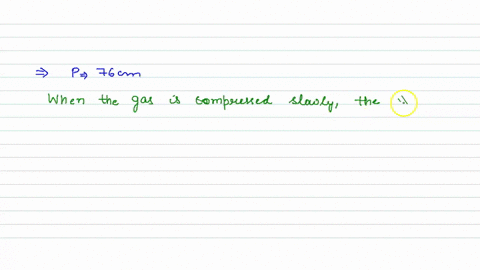 ⇒ P⇒ 76cm
When the gas is compressed slowly, the